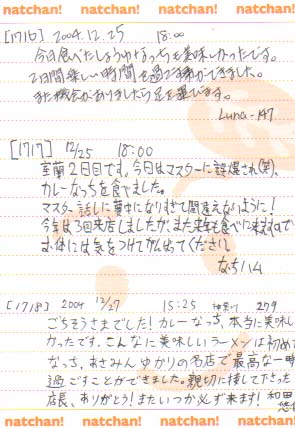 natchan! natchan! natchan! natchan!
[1716] 2004.12.25 18:00
今日食べたしょうゆなっちも美味しかったです。
2日間楽しい時間を過ご事ができました。
また機会がありましたら足を運びます。
Luna-147
[1717] 12/25 18:00
室蘭2日目です。今日はマスターに誤爆され(笑)、
カレーなっちを食べました。
マスター話しに夢中になりすぎて間違えなように!
今年は3回来店しましたが、また来年も食べに来ますので
お体には気をつけてがんばってください。
なちハム
[1718] 2004 12/27 15:25 神奈川 209
ごちそうさまでした!カレーなっち、本当に美味し
かったです。こんなに美味しいラーメンは初めて
なっち、あさみんゆかりの名店で最高な一時
過ごすことができました。親切に接して下さった
店長、ありがとう!またいつか必ず来ます! 和田
natchan! natchan! natchan! natchan!